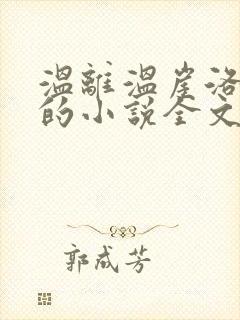 溫離溫崖洛
的小說全文
郭成芳